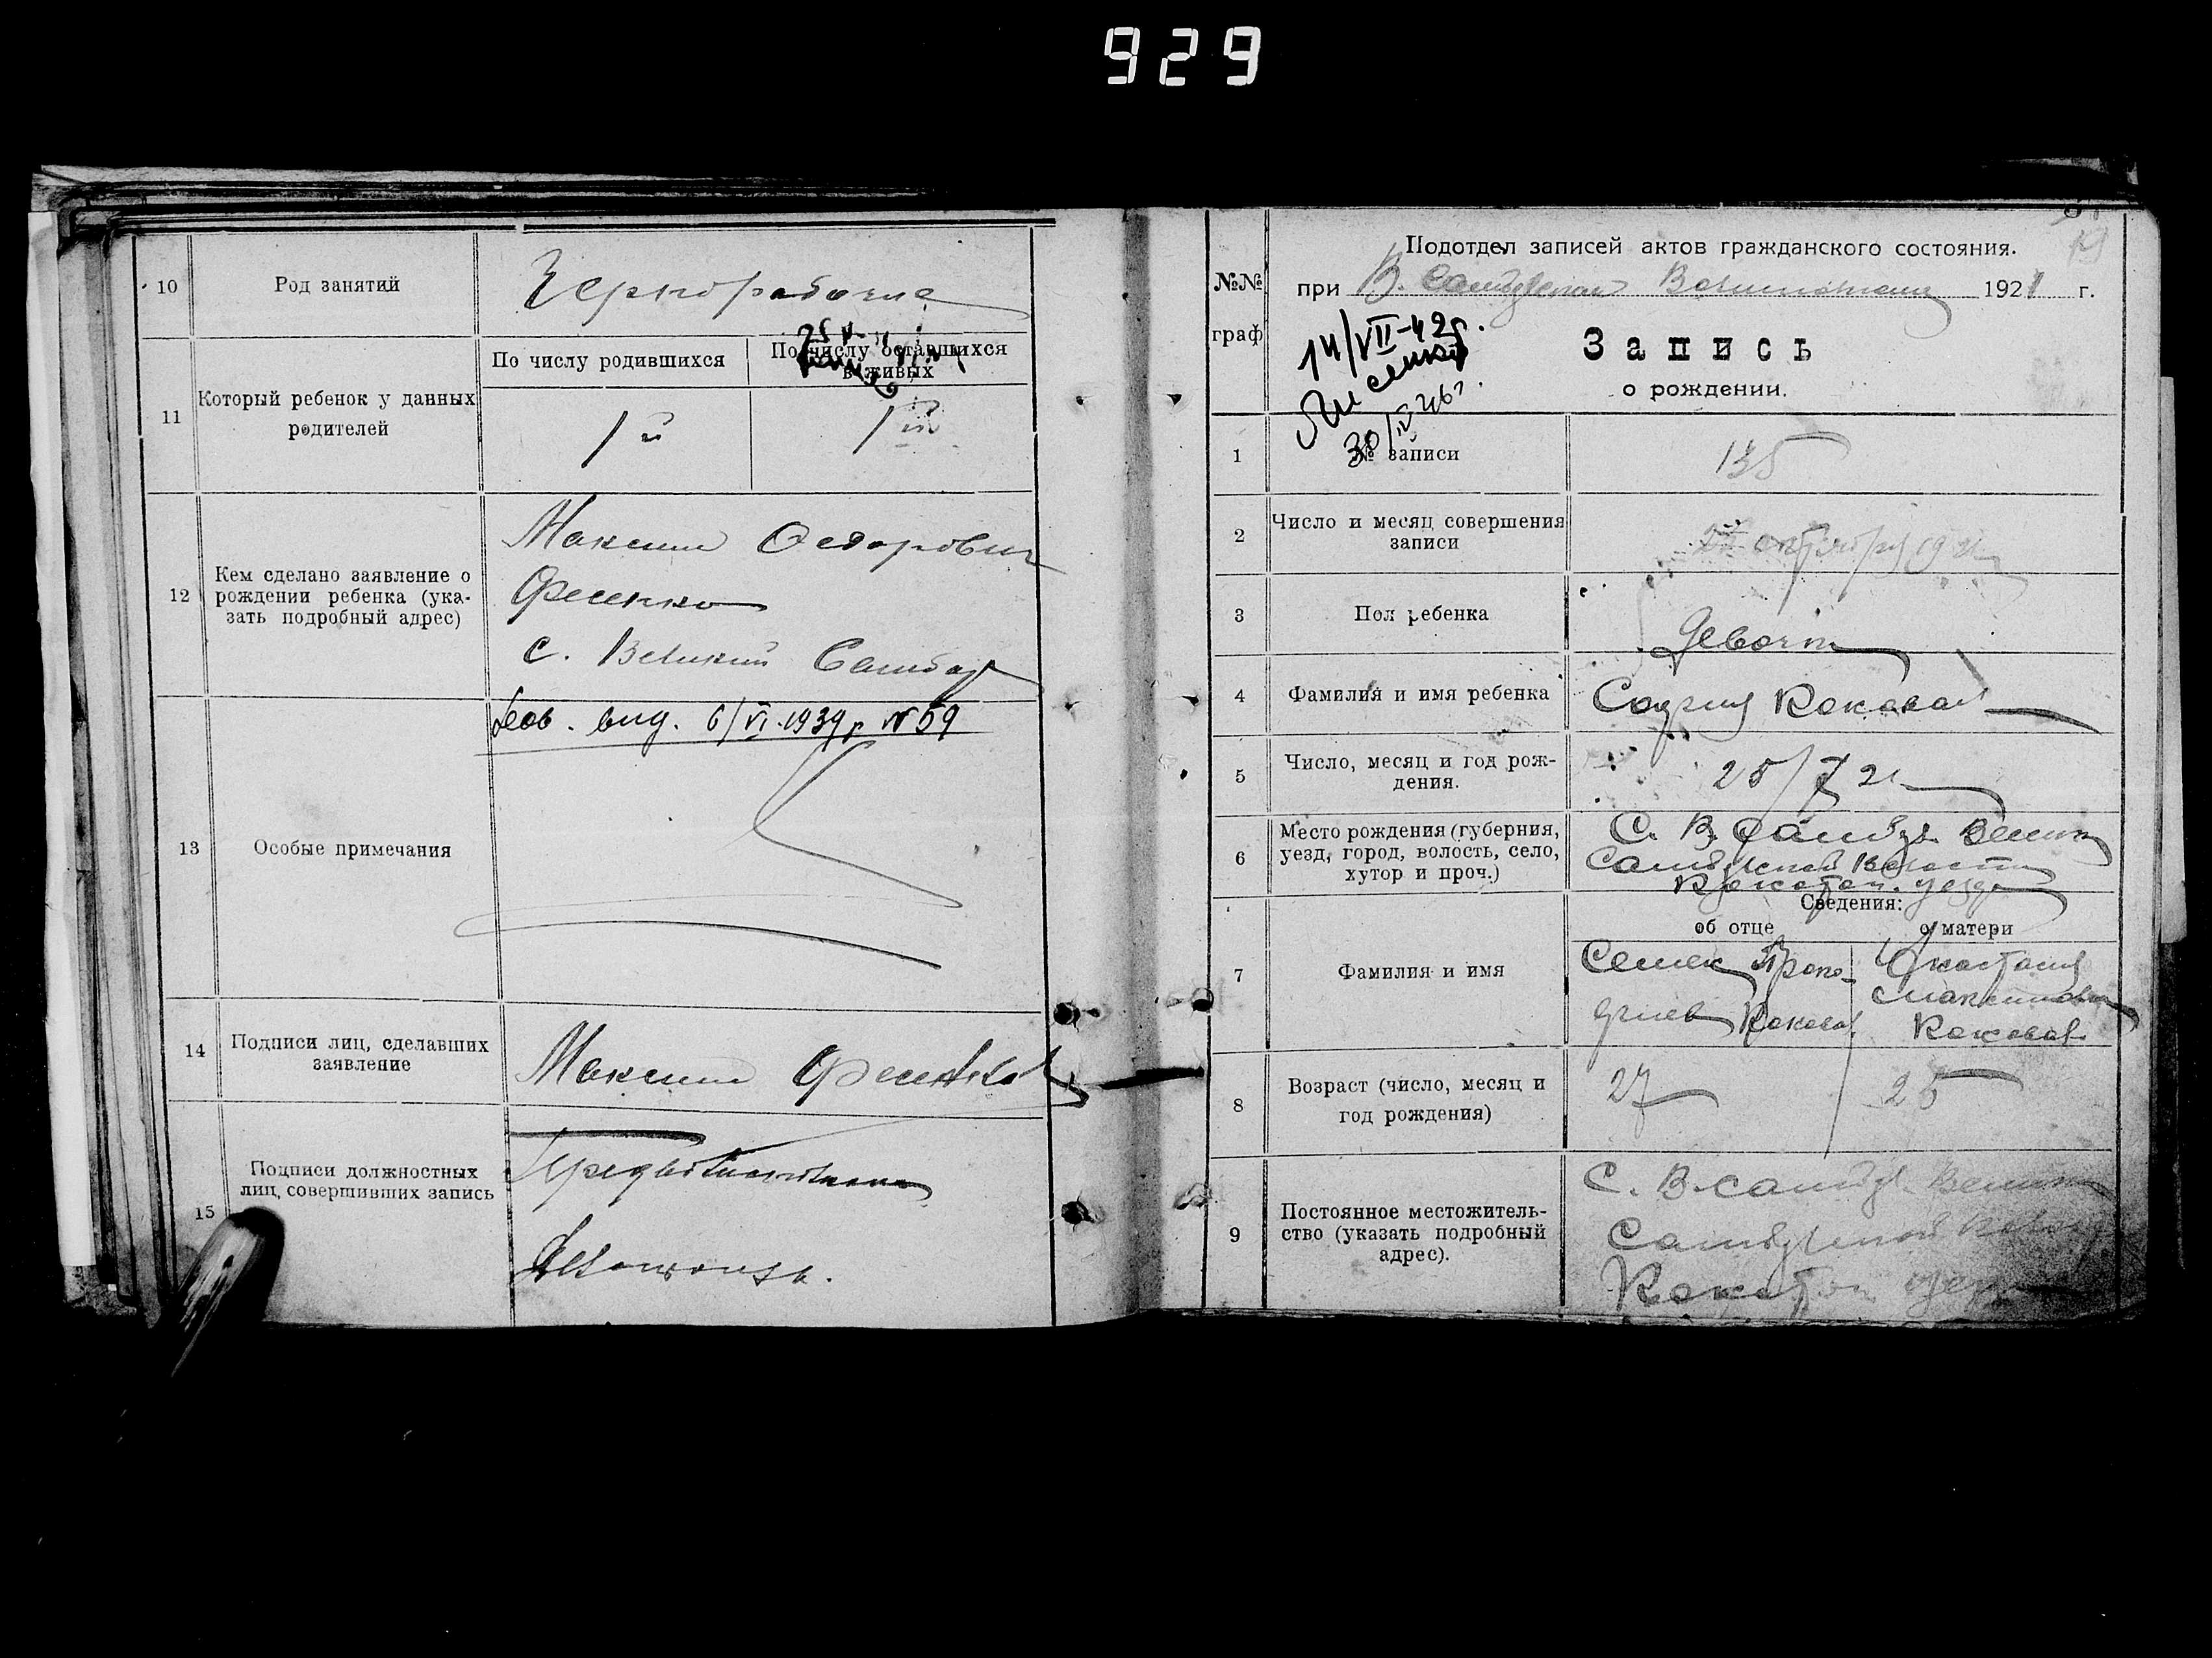 929
10
Род занятий
Чернорабочие
11
Который ребенок у данных
родителей
По числу родившихся
По числу оставшихся
в живых
1й
1й
12
Кем сделано заявление о
рождении ребенка (ука-
зать подробный адрес)
Максим Федорович
Фесенко
с. Великий Самбор
13
Особые примечания
вид. 6/VI-1939 р №59
14
Подписи лиц, сделавших
заявление
Максим Фесенко
15
Подписи должностных
лиц, совершивших запись
№№
граф
Подотдел записей актов гражданского состояния.
19
при В. Самбурском 1921 г.
14/VII-42г.
Лисенко
30/IV 46г.
Запись
о рождении.
1
№ записи
135
2
Число и месяц совершения
записи
октября 1921
3
Пол ребенка
Девочка
4
Фамилия и имя ребенка
5
Число, месяц и год рож-
дения.
25/7 21
6
Место рождения (губерния,
уезд, город, волость, село,
хутор и проч.)
С. В. Самбур Велико
Самбурской Волости
Конотоп. уезда
Сведения:
об отце
о матери
7
Фамилия и имя
Семен Проко-
Анастасия
Максимовна
8
Возраст (число, месяц и
год рождения)
27
25
9
Постоянное местожитель-
ство (указать подробный
адрес).
С. В. Самбур Велико
Самбурской волости
Конотоп уезда